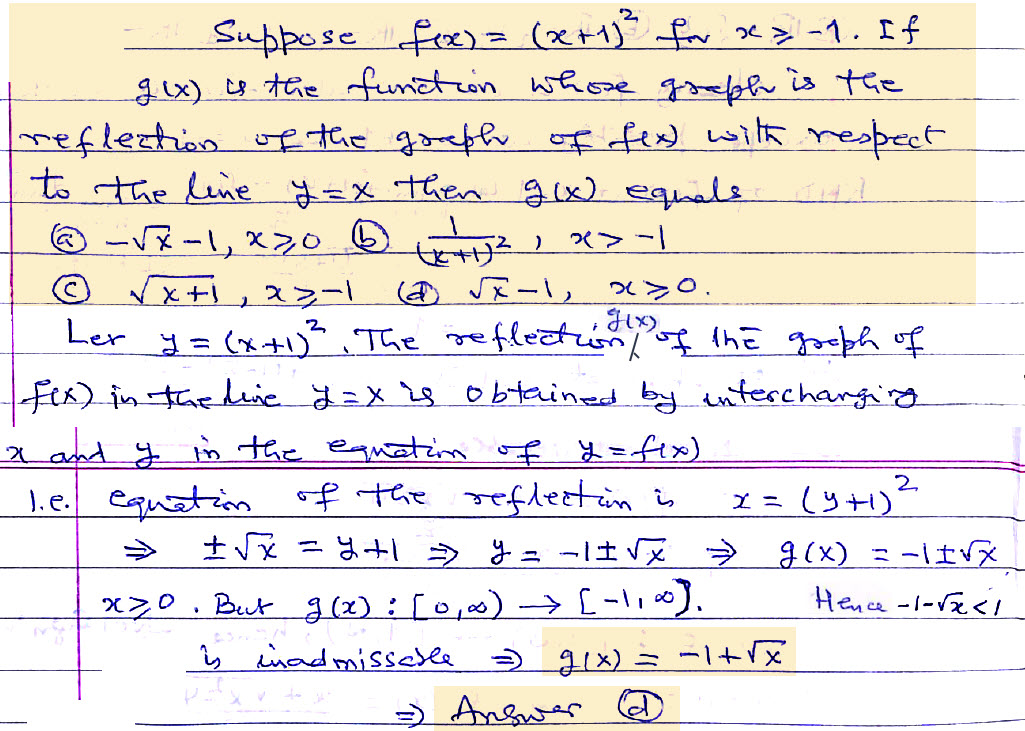 Suppose f(x) = (x+1)² for x ⩾ -1. If
g(x) is the function whose graph is the
reflection of the graph of f(x) with respect
to the line y=x then g(x) equals
ⓐ -√x -1, x⩾0 ⓑ 1/(x+1)², x > -1
ⓒ √(x+1), x ⩾ -1 ⓓ √x -1, x ⩾ 0.
Let y = (x+1)². The reflection g(x) of the graph of
f(x) in the line y=x is obtained by interchanging
x and y in the equation of y = f(x)
I.e. equation of the reflection is x = (y+1)²
⇒ ±√x = y+1 ⇒ y = -1±√x ⇒ g(x) = -1±√x
x⩾0. But g(x) : [0,∞) → [-1,∞). Hence -1-√x<1
is inadmissable ⇒ g(x) = -1+√x
⇒ Answer ⓓ